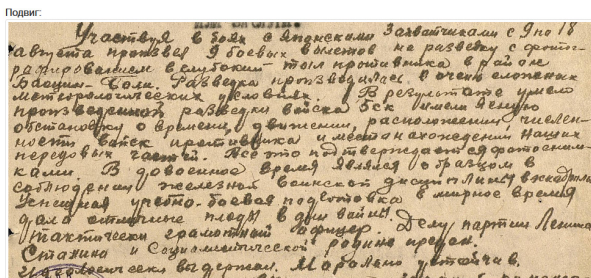 Подвиг:
Участвуя в боях с Японскими Захватчиками с 9 по 18
августа произвел 9 боевых вылетов на разведку с фото-
графированием в глубокий тыл противника в район
Разведка производилась в очень сложных
метеорологических условиях. В результате умело
произведенной разведки войска 5ск имели ясную
обстановку о времени, движении, расположении, числен-
ности войск противника и местанахождения наших
передовых частей. Все это подтверждается фотосним-
ками. В довоенное время являлся образцом в
соблюдении железной воинской дисциплины
Успешная учебно-боевая подготовка в мирное время
дала отличные плоды в дни войны.
Тактически грамотный офицер. Делу партии Ленина
Сталина и Социалистической родине предан.
Идеологически выдержан. Морально устойчив.